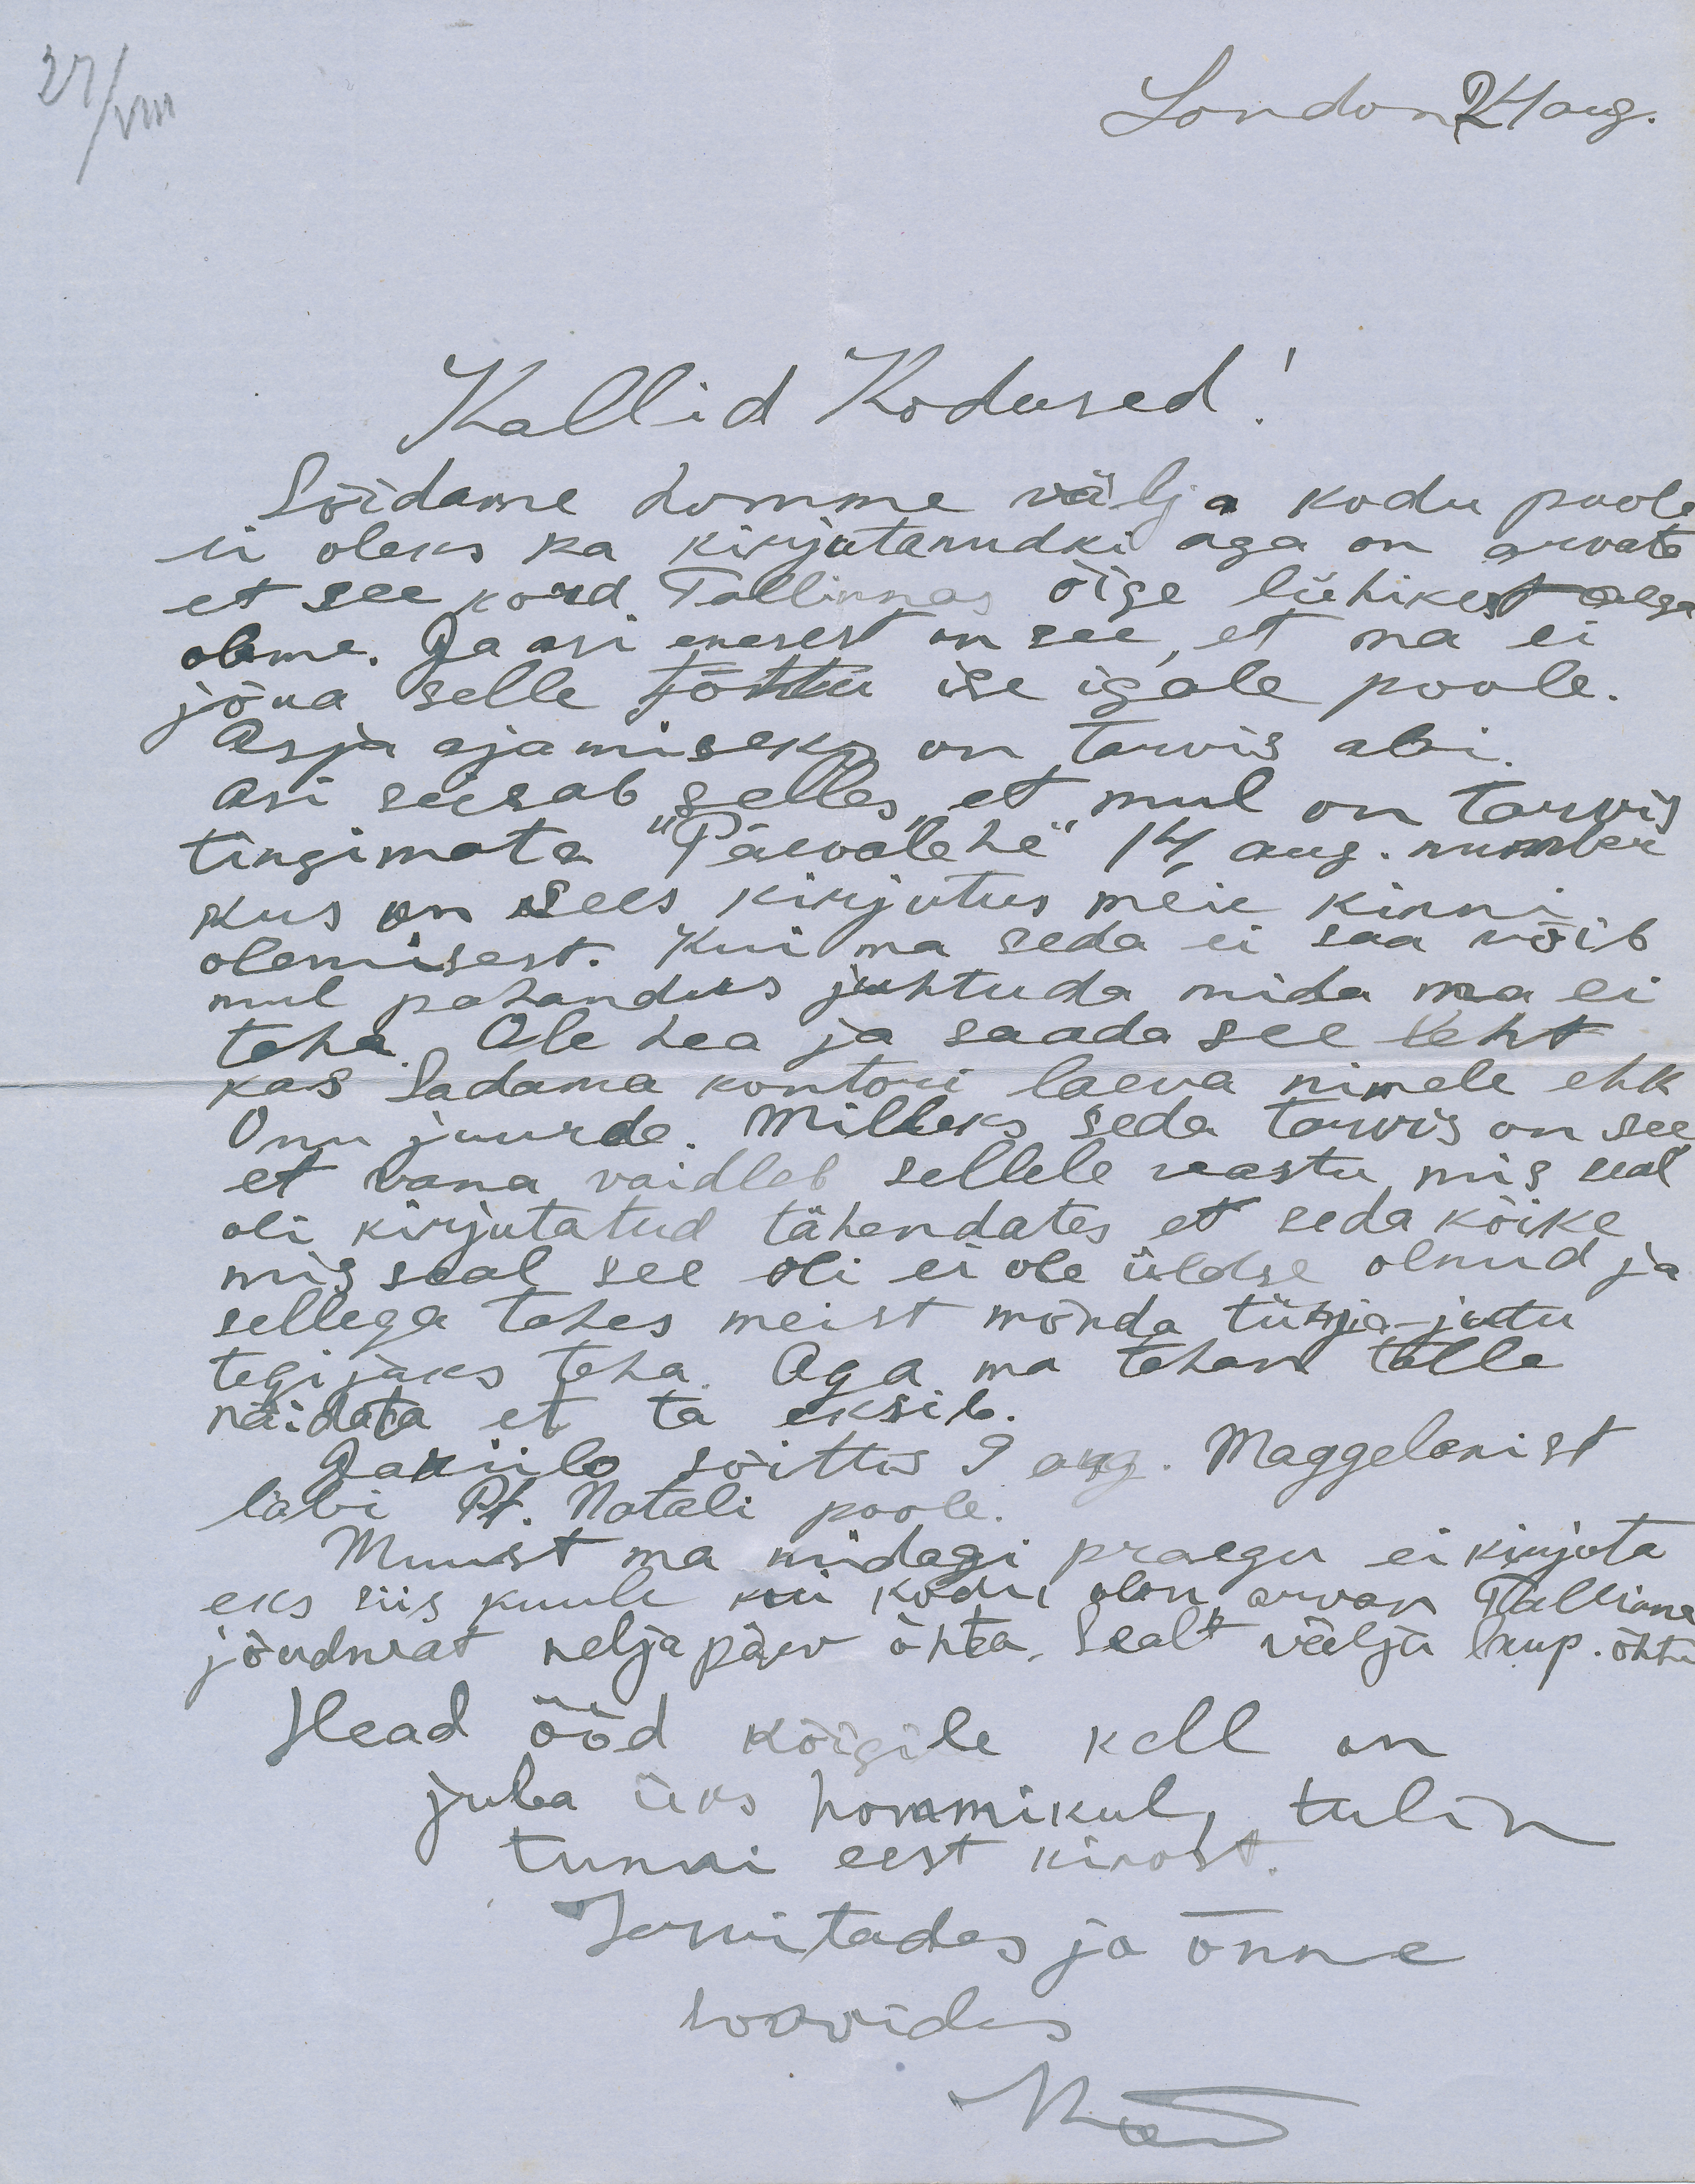 27/VIII
London 24 aug.
Kallid Kodused!
Sõidame homme välja kodu poole
ei oleks ka kirjutanudki aga on arvata
et see kord Tallinnas õige lühikest aega
oleme. Ja asi enesest on see, et ma ei
jõua selle tõttu ise igale poole.
Asja ajamiseks on tarvis abi.
Asi seisab selles, et mul on tarvis
tingimata "Päevalehe" 14, aug. number
kus on sees kirjutus meie kinni
olemisest. Kui ma seda ei saa võib
mul pahandus juhtuda mida ma ei
taha. Ole hea ja saada see leht
kas Sadama kontori laeva nimele ehk
Onu juurde. Milleks seda tarvis on see,
et vana vaidleb sellele vastu mis seal
oli kirjutatud tähendates et seda kõike
mis seal see oli ei ole üldse olnud ja
sellega tahes meist mõnda tühja-jutu
tegijaks teha. Aga ma tahan talle
näidata et ta eksib.
sõittis 9 aug. Maggelanist
läbi Pt. Natali poole.
Muust ma midagi praegu ei kirjuta
eks siis kuule kui kodu olen arvan Tallinna
jõudvat neljapäev õhta. Sealt välja laup. õhta
Head ööd kõigile kell on
juba üks hommikul, tulin
tunni eest kinost.
Tervitades ja õnne
soovides